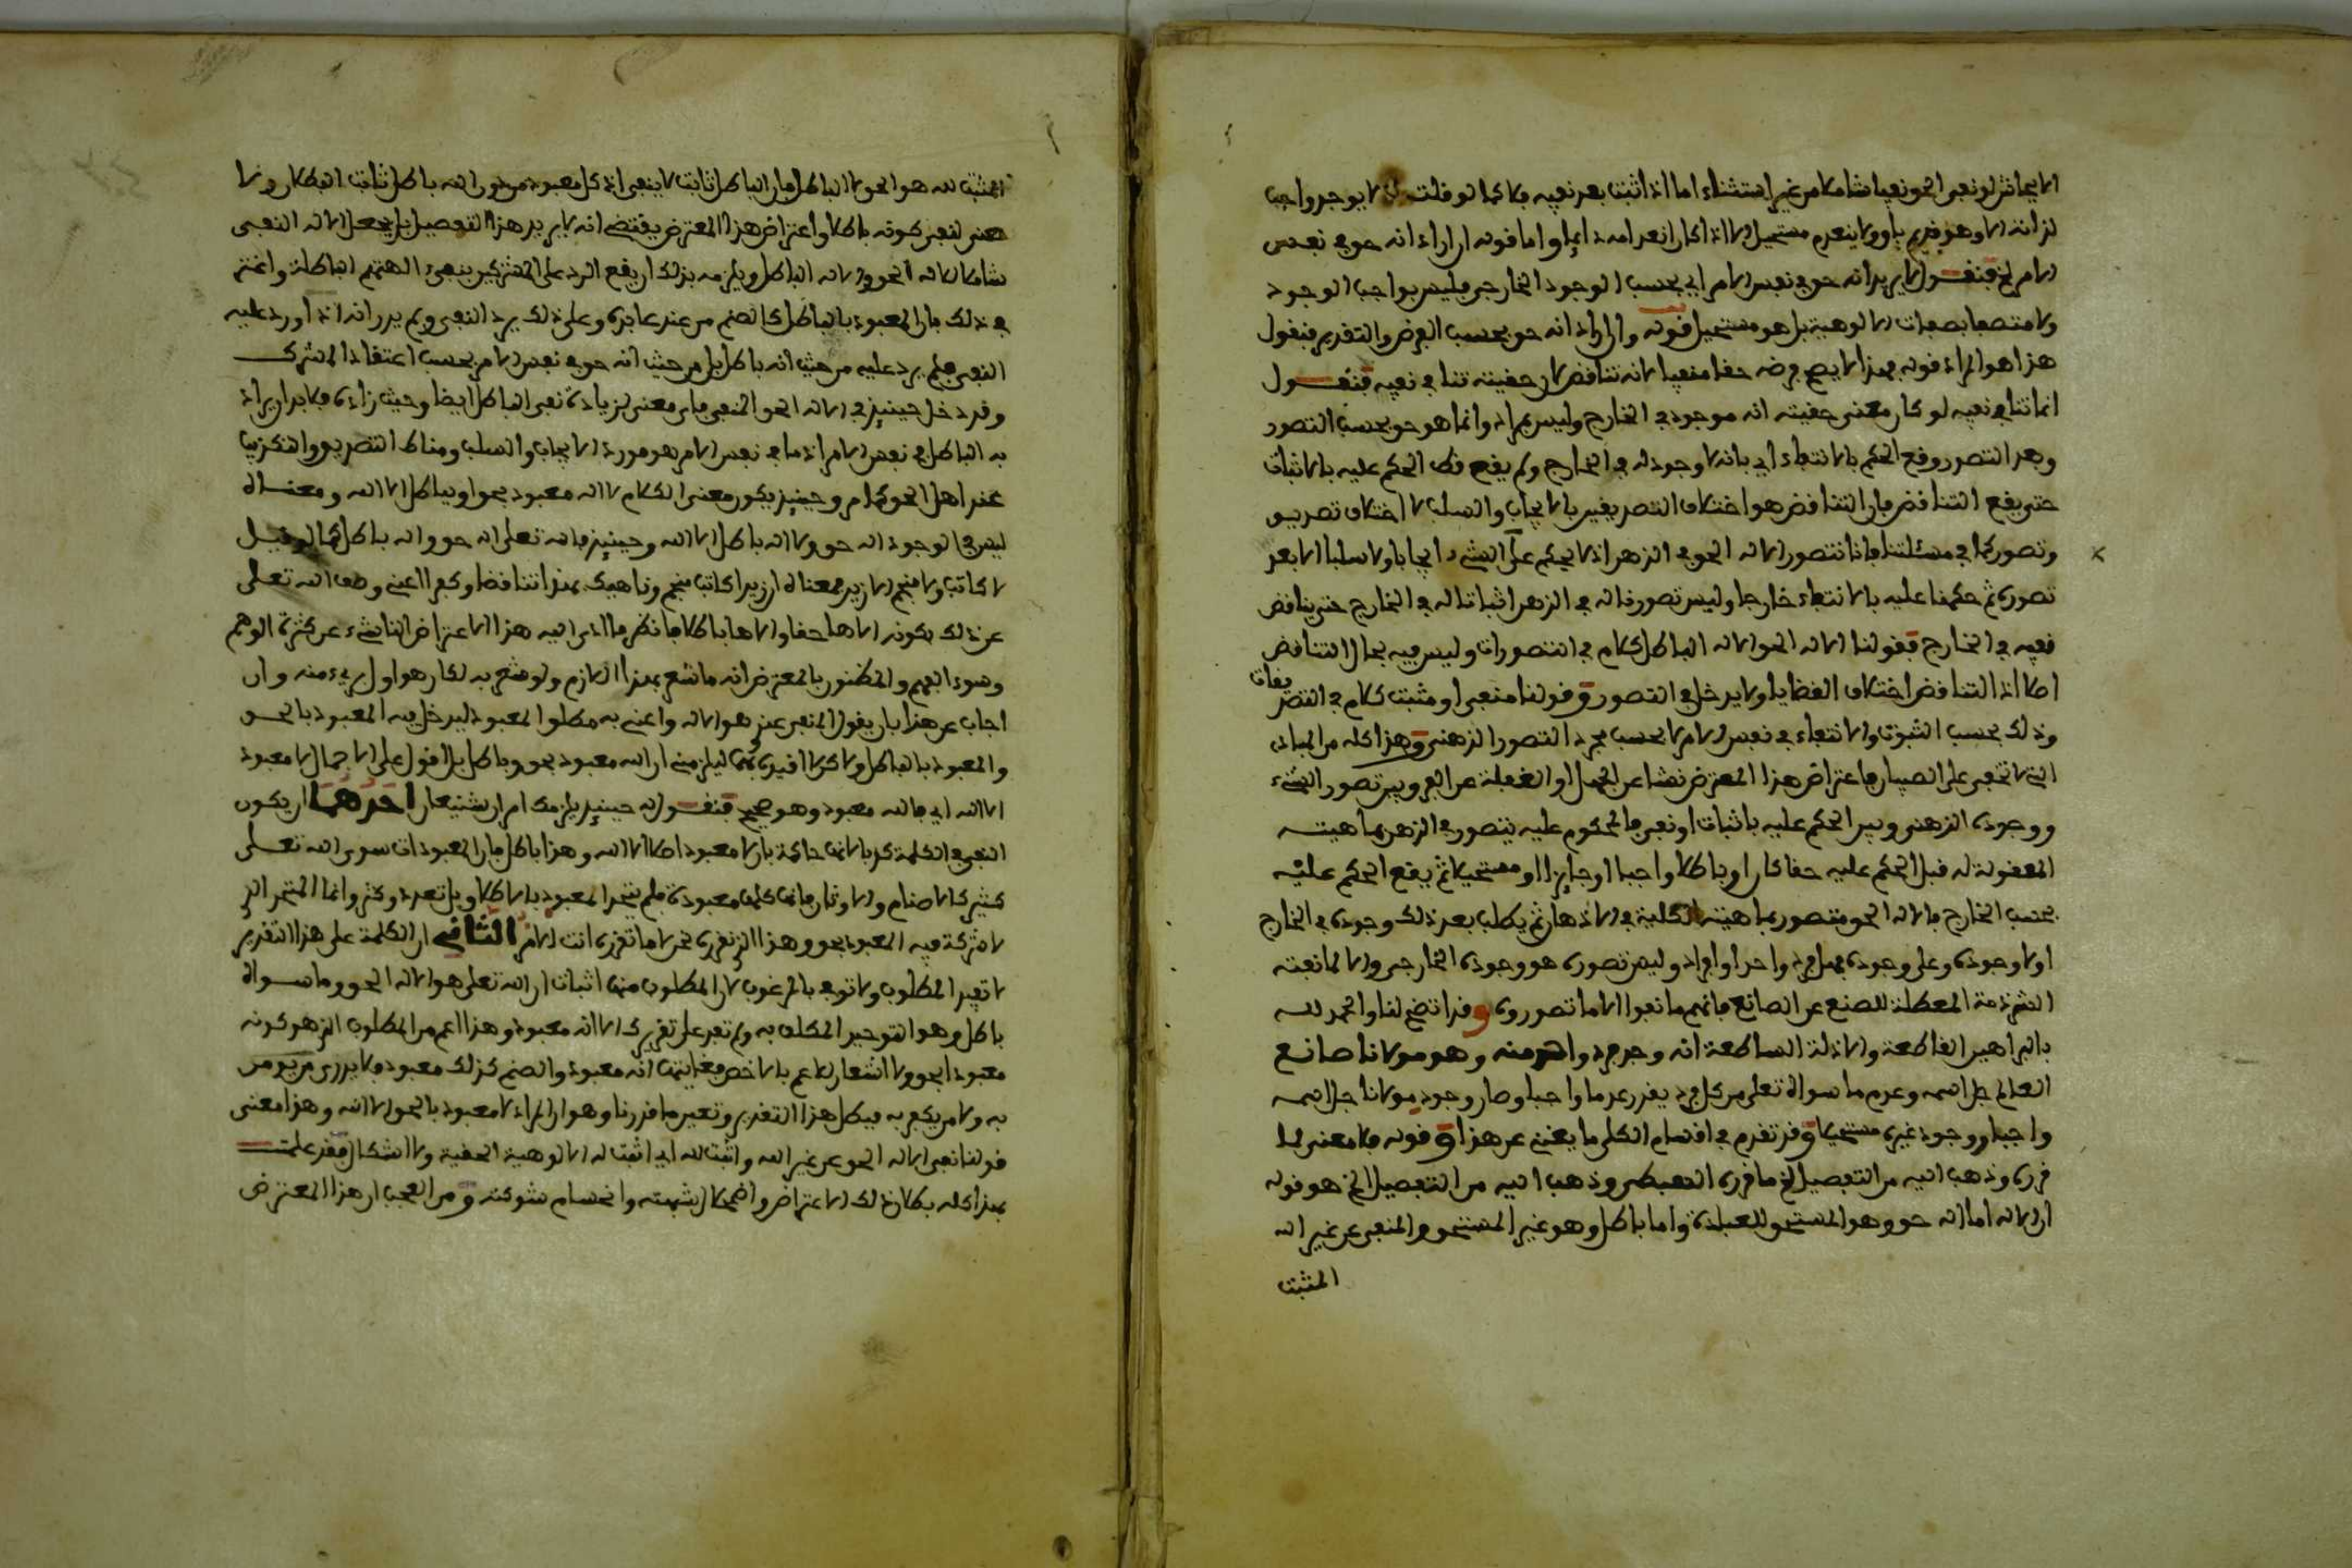 الايجاب لو نفى الحق نفيا شاملا من غير استثناء اما اذا اثبت بعد نفيه فلا كما لو قلت لا يوجد واجب
لذاته الا وهو قديم باق ولا ينعدم مستحيل الا اذا كان انعدامه دايما واما قوله ان اراد انه حق في نفس
الامر الخ فنقول لا يريد انه حق في نفس الامر اي بحسب الوجود الخارجي فليس بواجب الوجود
ولا متصفا بصفات الالوهية بل هو مستحيل قوله وان اراد انه حق بحسب الفرض والتقدير فنقول
هذا هو المراد قوله فهذا لا يصح فرضه حقا منفيا لانه تناقض لان حقيته تنافي نفيه فنقول
انما تنافي نفيه لو كان معنى حقيته انه موجود في الخارج وليس بمراد وانما هو حق بحسب التصور
وبعد التصور وقع الحكم بالانتفاء اي بانه لا وجود له في الخارج ولم يقع قط الحكم عليه بالاثبات
حتى يقع التناقض فان التناقض هو اختلاف التصديقين بالايجاب والسلب لا اختلاف تصديق
وتصور كما في مسئلتنا فانا نتصور الاله الحق في الذهن اذ لا يحكم على الشيء ايجابا ولا سلبا الا بعد
تصوره ثم حكمنا عليه بالانتفاء خارجا وليس تصورنا له في الذهن اثباتا له في الخارج حتى يناقض
نفيه في الخارج فقولنا الاله الحق الاله الباطل كلام في التصورات وليس فيه مجال التناقض
اصلا اذ التناقض اختلاف القضايا ولا يدخل في التصور وقولنا منفي او مثبت كلام في التصديقات
وذلك بحسب الثبوت والانتفاء في نفس الامر لا بحسب مجرد التصور الذهني وهذا كله من المبادي
التي لا تخفى على الصبيان فاعتراض هذا المعترض نشا عن الجهل او الغفلة عن الفرق بين تصور الشيء
ووجوده الذهني وبين الحكم عليه باثبات او نفي فالمحكوم عليه يتصور في الذهن بماهيته
المعقولة له قبل الحكم عليه حقا كان او باطلا واجبا او جايزا او مستحيلا ثم يقع الحكم عليه
بحسب الخارج فالاله الحق متصور بماهيته الكلية في الاذهان ثم يطلب بعد ذلك وجوده في الخارج
او لا وجوده وعلى وجوده فهل فرد واحد او افراد وليس تصوره هو وجوده الخارجي والا لما نفته
الشرذمة المعطلة للصنع عن الصانع فانهم ما نفوا الا ما تصوروه وقد اتضح لنا والحمد لله
بالبراهين القاطعة والادلة الساطعة انه وجد فرد واحد منه وهو مولانا صانع
العالم جل اسمه وعدم ما سواه تعلى من كل فرد يقدر عدما واجبا وصار وجود مولانا جل اسمه
واجبا ووجود غيره مستحيلا وقد تقدم في اقسام الكلي ما يغني عن هذا وقوله فلا معنى لما
قرره وذهب اليه من التفصيل الخ ما قرره الهبطي وذهب اليه من التفصيل الخ هو قوله
ان الاله اما اله حق وهو المستحق للعبادة واما باطل وهو غير المستحق والمنفي عن غير الله
المثبت
المثبت لله هو الحق لا الباطل فان الباطل ثابت لا ينفى اذ كل معبود من دون الله باطل ثابت البطلان ولا
معنى لنفي كونه باطلا واعتراض هذا المعترض يقتضي انه لا يريد هذا التفصيل بل يجعل الاله النفي
شاملا للاله الحق والاله الباطل ويلزمه بذلك ان يقع الرد على المشركين بنفي الهتهم الباطلة واغتر
في ذلك بان المعبود بالباطل كالصنم من عند عابده وعلى ذلك يرد النفي ولم يدر انه اذا ورد عليه
النفي فلم يرد عليه من حيث انه باطل بل من حيث انه حق في نفس الامر بحسب اعتقاد المشرك
وقد دخل حينيذ في الاله الحق المنفي فاي معنى لزيادة نفي الباطل ايضا وحيث زاده فلا بد ان يراد
به الباطل في نفس الامر اذ ما في نفس الامر هو مورد الايجاب والسلب ومناط التصديق والتكذيب
عند اهل الحق كما مر وحينيذ يكون معنى الكلام لا اله معبود بحق او بباطل الا الله ومعناه
ليس في الوجود اله حق ولا اله باطل الا الله وحينيذ فالله تعلى اله حق واله باطل كما لو قيل
لا كاتب ولا منجم الا زيد فمعناه ان زيدا كاتب منجم وناهيك بهذا تناقضا وكفرا اعني وصف الله تعلى
عن ذلك بكونه الاها حقا والاها باطلا فانظر ما ادى اليه هذا الاعتراض الناشيء عن كثرة الوهم
وسوء الفهم والمظنون بالمعترض انه ما شعر بهذا اللازم ولو شعر به لكان هو اول بريء منه وان
اجاب عن هذا بان يقول المنفي عندي هو الاله واعني به مطلق المعبود ليدخل فيه المعبود بالحق
والمعبود بالباطل ولاكن لا اقيده بهما ليلزمني ان الله معبود بحق وباطل بل اقول على الاجمال لا معبود
الا الله اي فالله معبود وهو صحيح فنقول له حينيذ يلزمك امران شنيعان احدهما ان يكون
النفي في الكلمة كذبا لانها حاكمة بان لا معبود اصلا الا الله وهذا باطل فان المعبودات سوى الله تعلى
كثير كالاصنام والاوثان فانها كلها معبودة فلم يتحد المعبود بالاطلاق بل تعدد وكثر وانما المتحد الذي
لا شركة فيه المعبود بحق وهذا الذي نقرره نحن لا ما تقرره انت الامر الثاني ان الكلمة على هذا التقدير
لا تفيد المطلوب ولا توفي بالمرغوب لان المطلوب منها اثبات ان الله تعلى هو الاله الحق وما سواه
باطل وهو التوحيد المكلف به ولم تفد على تقريرك الا انه معبود وهذا اعم من المطلوب الذي هو كونه
معبودا بحق ولا اشعار للاعم بالاخص فغايتها انه معبود والصنم كذلك معبود فلا يدرى من يومن
به ولا من يكفر به فيبطل هذا التقدير وتعين ما قررنا وهو ان المراد لا معبود بالحق الا الله وهذا معنى
قولنا نفي الاله الحق عن غير الله واثبت لله اي اثبت له الالوهية الحقية ولا اشكال فقد علمت
بهذا كله بطلان ذلك الاعتراض واضمحلال شبهته وانحسام شوكته ومن العجب ان هذا المعترض